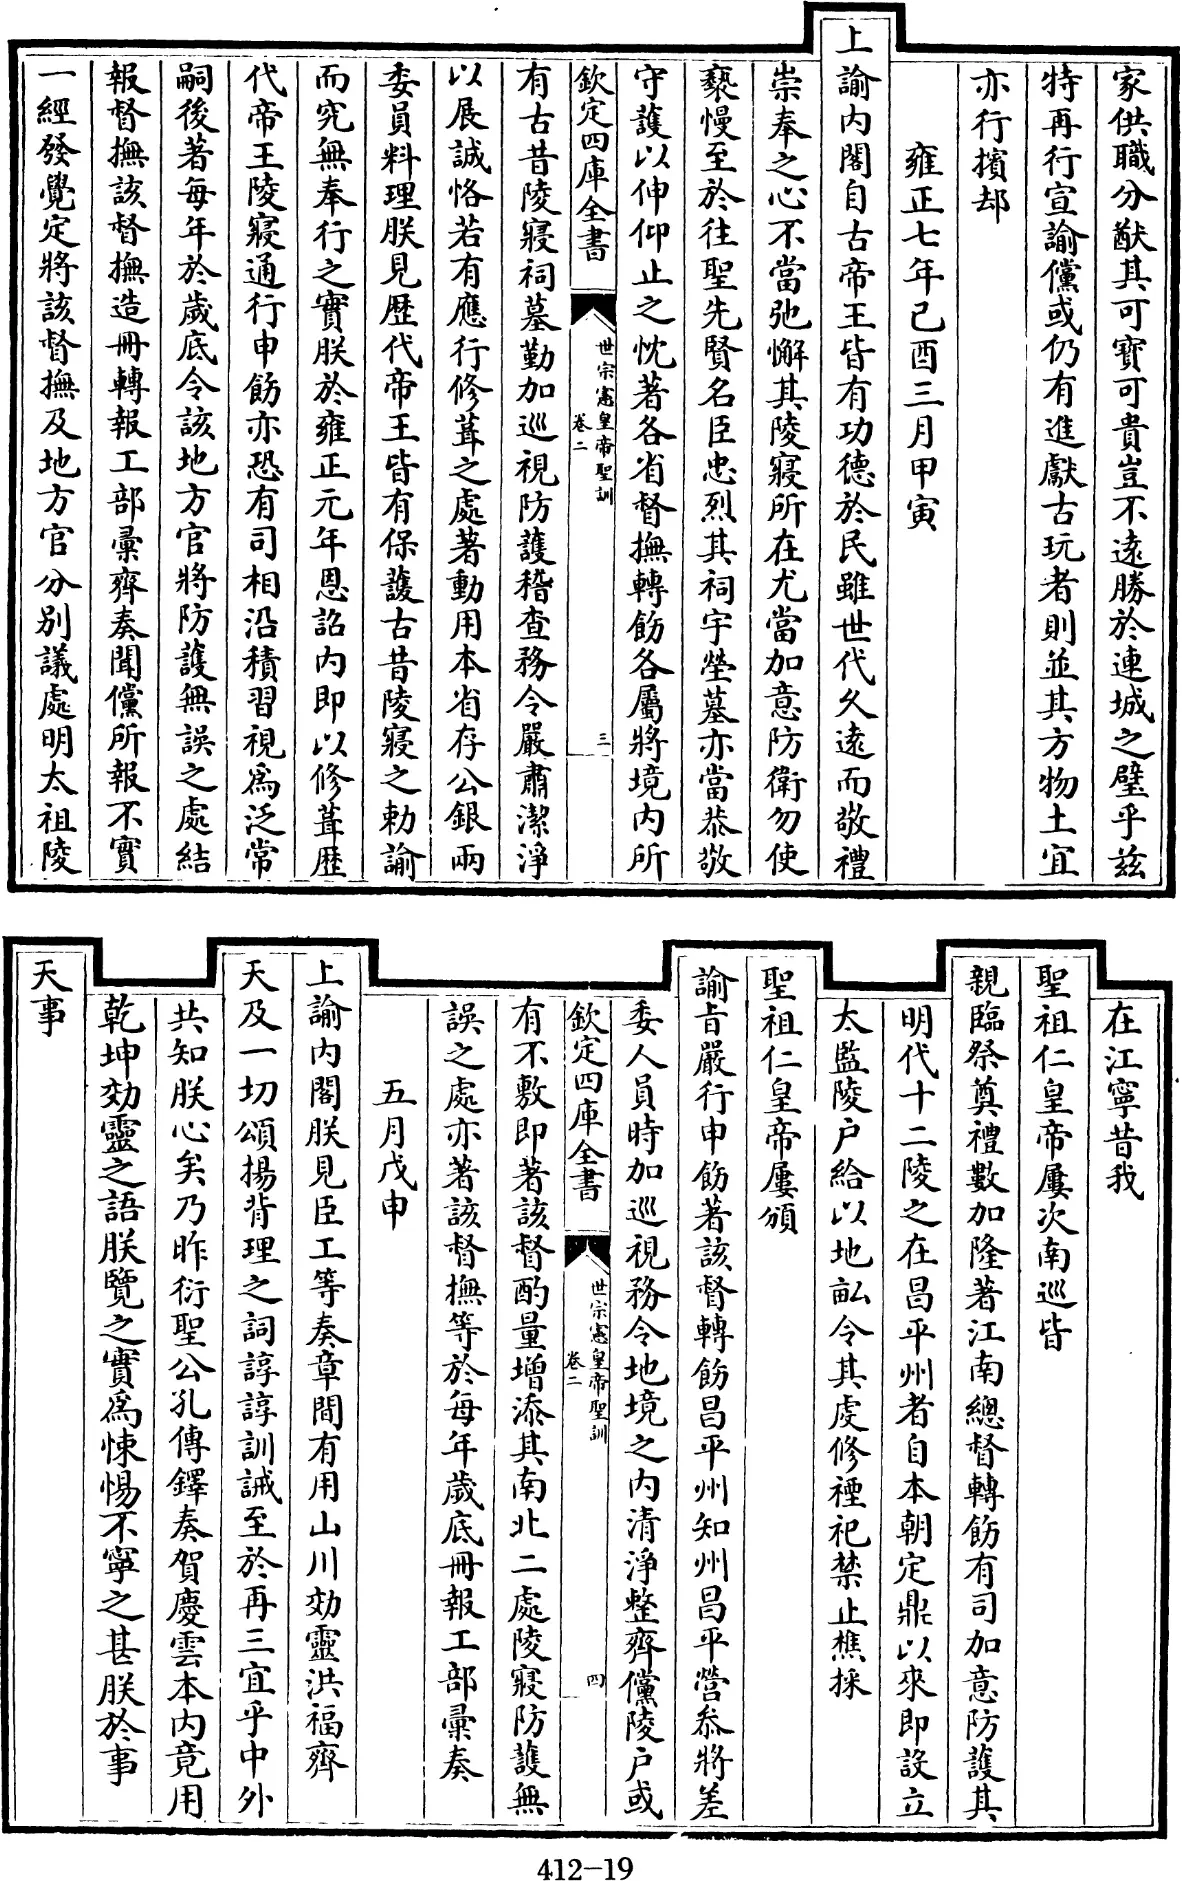 家供職分猷其可寶可貴豈不遠勝於連城之璧乎茲
特再行宣諭儻或仍有進獻古玩者則並其方物土宜
亦行擯却
雍正七年己酉三月甲寅
上諭內閣自古帝王皆有功德於民雖世代久遠而敬禮
崇奉之心不當弛懈其陵寢所在尤當加意防衛勿使
褻慢至於往聖先賢名臣忠烈其祠宇塋墓亦當恭敬
守護以伸仰止之忱著各省督撫轉飭各屬將境內所
欽定四庫全書
世宗憲皇帝聖訓
卷二
三
有古昔陵寢祠墓勤加巡視防護稽查務令嚴肅潔淨
以展誠恪若有應行修葺之處著動用本省存公銀兩
委員料理朕見歷代帝王皆有保護古昔陵寢之勅諭
而究無奉行之實朕於雍正元年恩詔內即以修葺歷
代帝王陵寢通行申飭亦恐有司相沿積習視為泛常
嗣後著每年於歲底令該地方官將防護無誤之處結
報督撫該督撫造冊轉報工部彙齊奏聞儻所報不實
一經發覺定將該督撫及地方官分別議處明太祖陵
在江寧昔我
聖祖仁皇帝屢次南巡皆
親臨祭奠禮數加隆著江南總督轉飭有司加意防護其
明代十二陵之在昌平州者自本朝定鼎以來即設立
太監陵戶給以地畝令其虔修禋祀禁止樵採
聖祖仁皇帝屢頒
諭旨嚴行申飭著該督轉飭昌平州知州昌平營叅將差
委人員時加巡視務令地境之內清淨整齊儻陵戶或
欽定四庫全書
世宗憲皇帝聖訓
卷二
四
有不敷即著該督酌量增添其南北二處陵寢防護無
誤之處亦著該督撫等於每年歲底冊報工部彙奏
五月戊申
上諭內閣朕見臣工等奏章間有用山川効靈洪福齊
天及一切頌揚背理之詞諄諄訓誡至於再三宜乎中外
共知朕心矣乃昨衍聖公孔傳鐸奏賀慶雲本內竟用
乾坤効靈之語朕覽之實為悚惕不寧之甚朕於事
天事
412-19